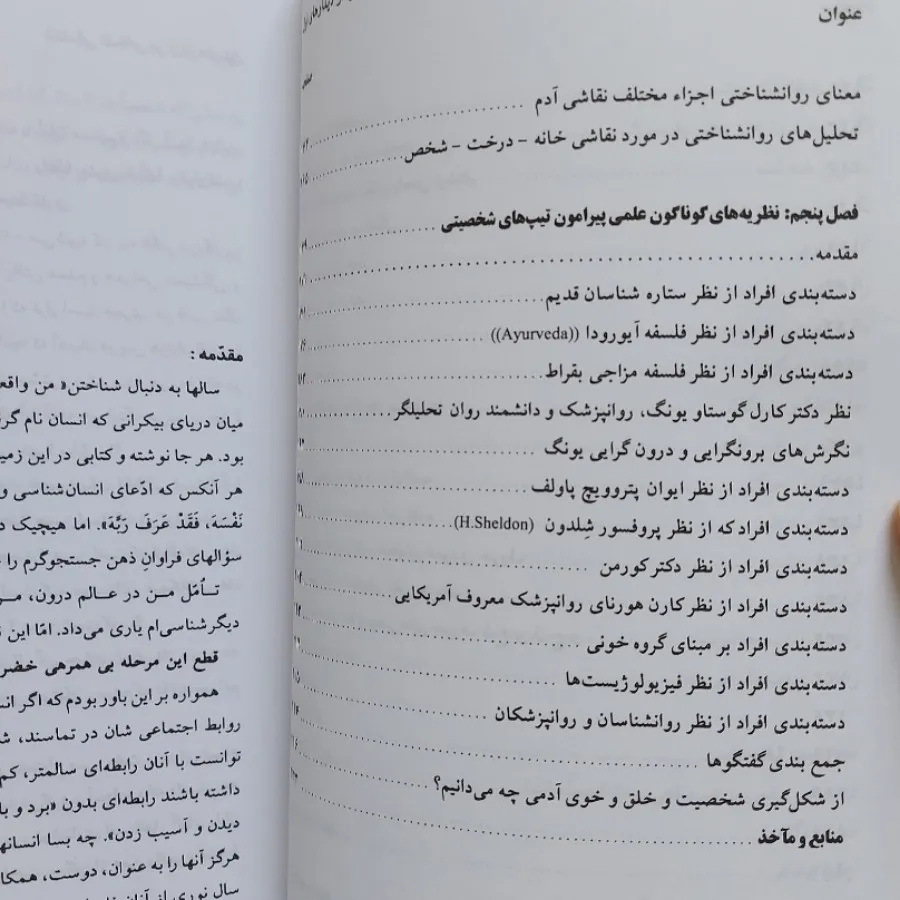 عنوان
معنای روانشناختی اجزاء مختلف نقاشی آدم
تحلیل‌های روانشناختی در مورد نقاشی خانه - درخت - شخص
فصل پنجم: نظریه‌های گوناگون علمی پیرامون تیپ‌های شخصیتی
مقدمه
دسته‌بندی افراد از نظر ستاره شناسان قدیم
دسته‌بندی افراد از نظر فلسفه آیورودا ((Ayurveda))
دسته‌بندی افراد از نظر فلسفه مزاجی بقراط
نظر دکتر کارل گوستاو یونگ، روانپزشک و دانشمند روان تحلیلگر
نگرش‌های برونگرایی و درون گرایی یونگ
دسته‌بندی افراد از نظر ایوان پتروویچ پاولف
دسته‌بندی افراد که از نظر پروفسور شِلدون (H.Sheldon)
دسته‌بندی افراد از نظر دکتر کورمن
دسته‌بندی افراد از نظر کارن هورنای روانپزشک معروف آمریکایی
دسته‌بندی افراد بر مبنای گروه خونی
دسته‌بندی افراد از نظر فیزیولوژیست‌ها
دسته‌بندی افراد از نظر روانشناسان و روانپزشکان
جمع بندی گفتگوها
از شکل‌گیری شخصیت و خلق و خوی آدمی چه می‌دانیم؟
منابع و مآخذ
مقدّمه :
سالها به دنبال شناختن« من واقع
میان دریای بیکرانی که انسان نام گر
بود. هر جا نوشته و کتابی در این زمی
هر آنکس که ادّعای انسان‌شناسی و
نَفْسَهَ، فَقَدْ عَرَفَ رَبَّهَ». اما هیچیک د
سؤالهای فراوانِ ذهن جستجوگرم را
تأمّل من در عالم درون، مر
دیگرشناسی‌ام یاری می‌داد. امّا این
قطع این مرحله بی همرهی خضر
همواره بر این باور بودم که اگر انس
روابط اجتماعی شان در تماسند، ش
توانست با آنان رابطه‌ای سالمتر، کم
داشته باشند رابطه‌ای بدون «برد و با
دیدن و آسیب زدن». چه بسا انسانه
هرگز آنها را به عنوان، دوست، همکا
سال نوری از آنان